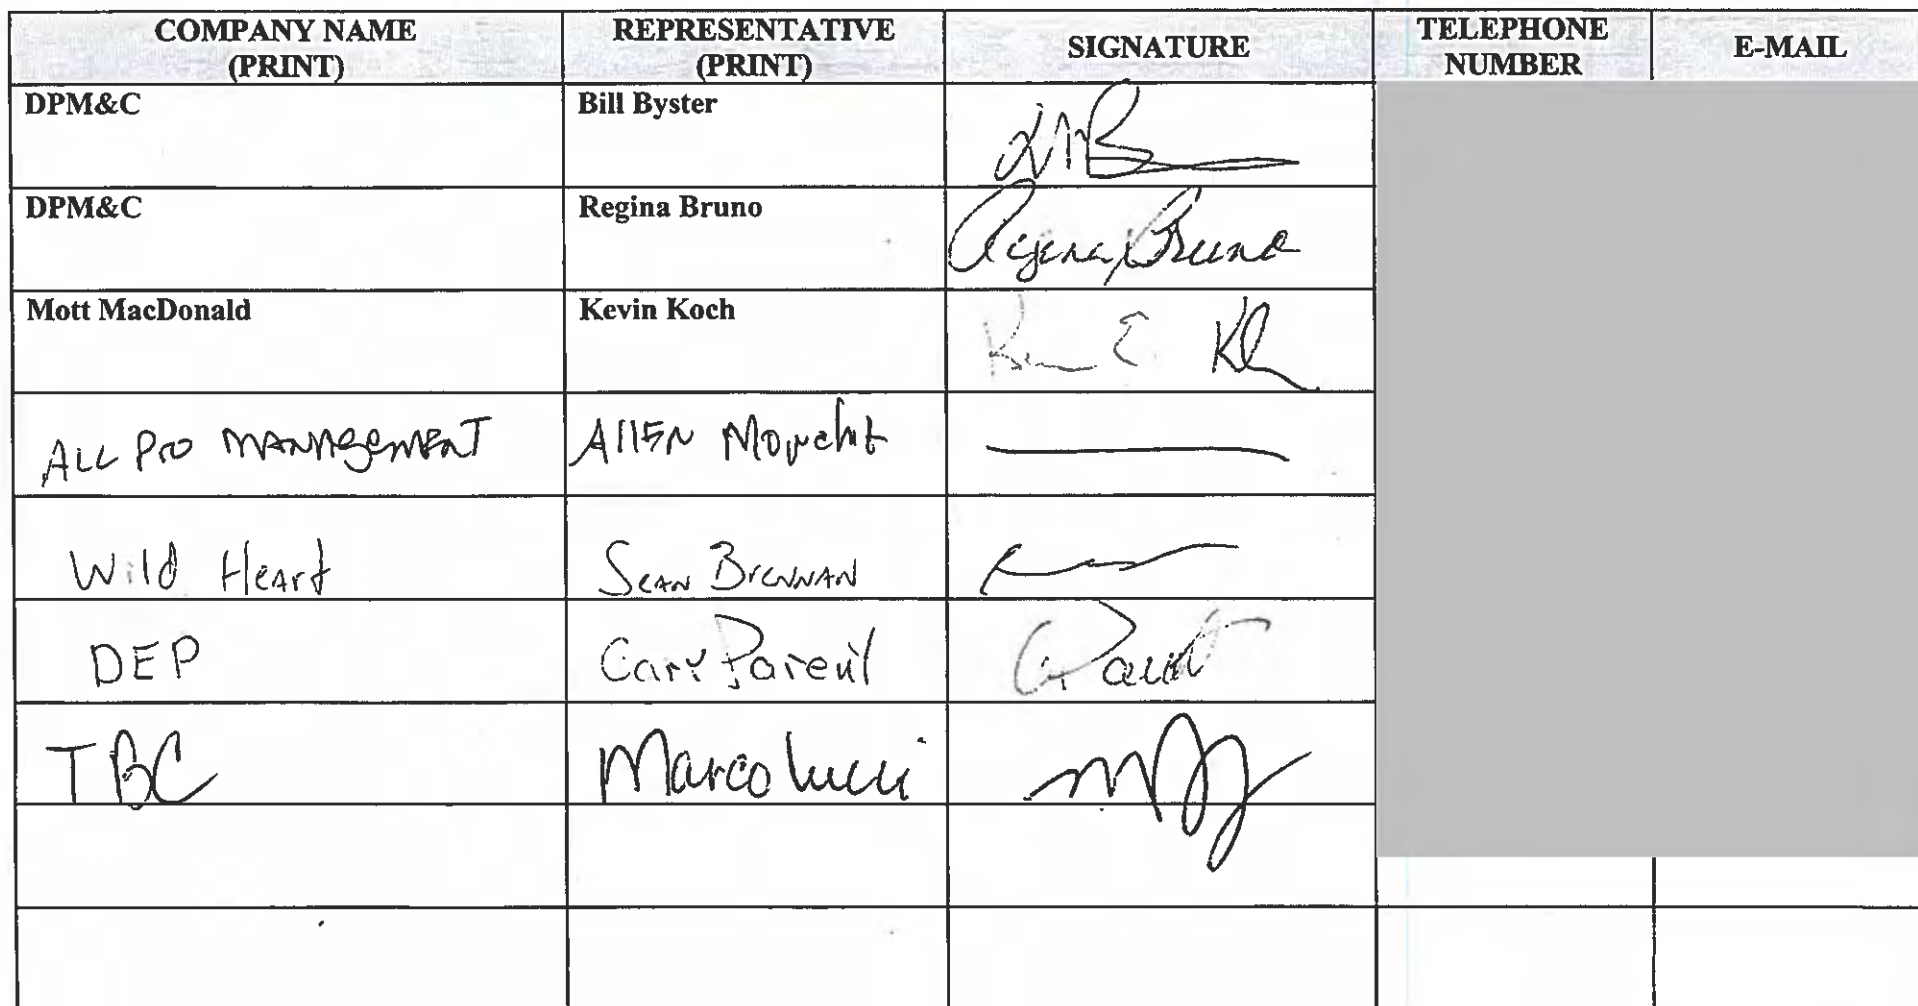 COMPANY NAME (PRINT) REPRESENTATIVE (PRINT) SIGNATURE TELEPHONE NUMBER E-MAIL
DPM&C Bill Byster
DPM&C Regina Bruno Regina Bruno
Mott MacDonald Kevin Koch
ALL PRO MANAGEMENT AllEN
Wild Heart SEAN BRENNAN
DEP Parent
TBC Marco Lucci